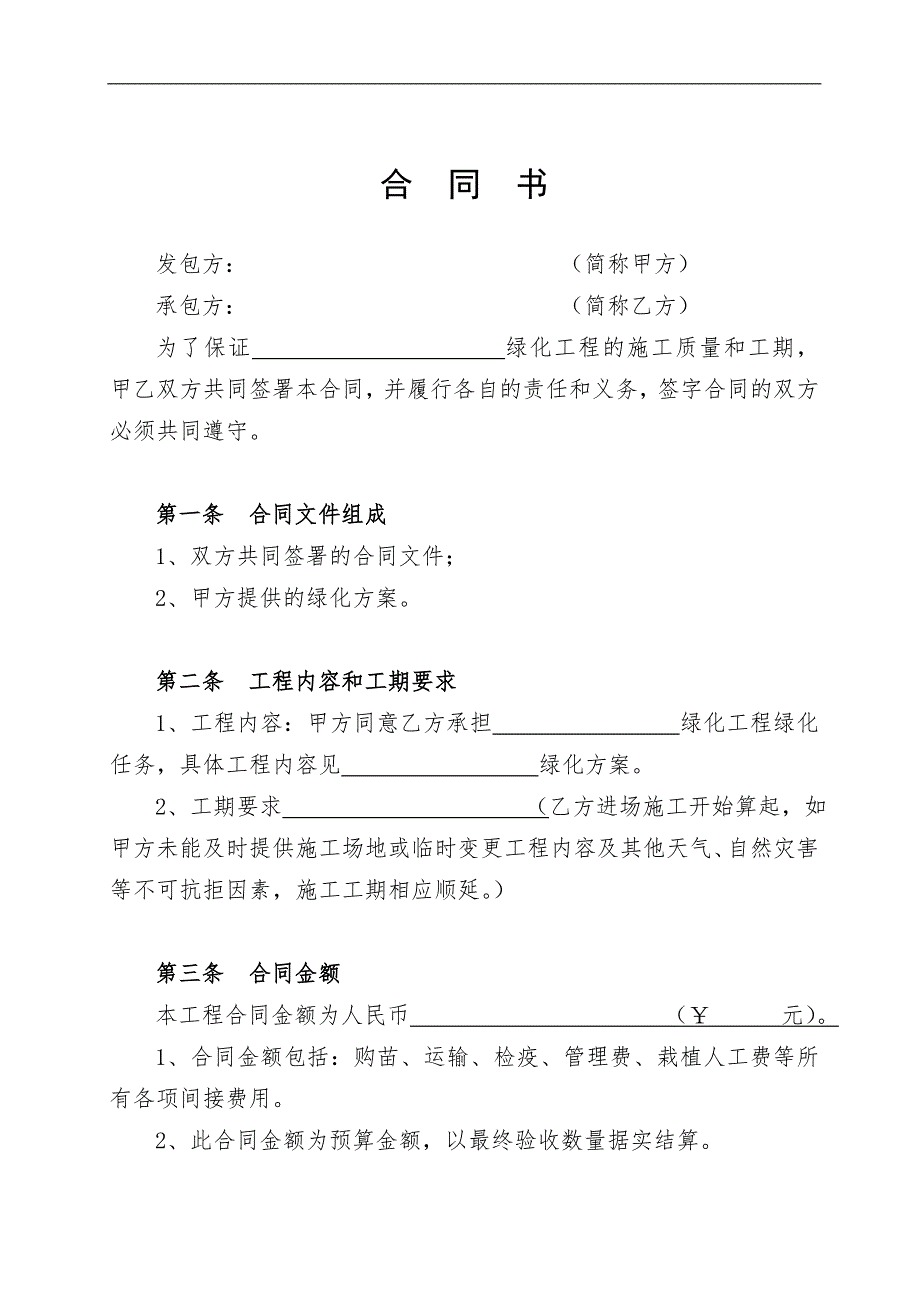 合 同 书
发包方： （简称甲方）
承包方： （简称乙方）
为了保证________________绿化工程的施工质量和工期，
甲乙双方共同签署本合同，并履行各自的责任和义务，签字合同的双方
必须共同遵守。
第一条 合同文件组成
1、双方共同签署的合同文件；
2、甲方提供的绿化方案。
第二条 工程内容和工期要求
1、工程内容：甲方同意乙方承担____________绿化工程绿化
任务，具体工程内容见____________绿化方案。
2、工期要求________________（乙方进场施工开始算起，如
甲方未能及时提供施工场地或临时变更工程内容及其他天气、自然灾害
等不可抗拒因素，施工工期相应顺延。）
第三条 合同金额
本工程合同金额为人民币________________（￥ 元）。
1、合同金额包括：购苗、运输、检疫、管理费、栽植人工费等所
有各项间接费用。
2、此合同金额为预算金额，以最终验收数量据实结算。